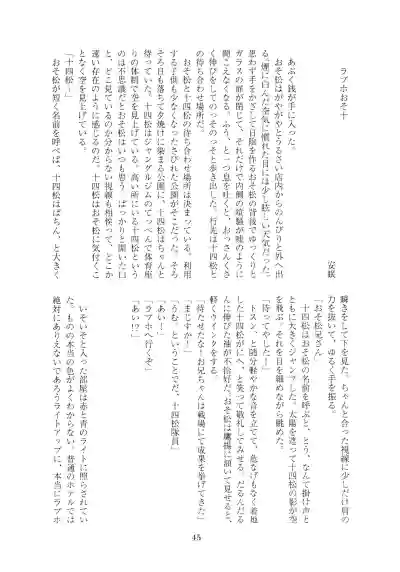 ラブホおそ十
安眠
あぶく銭が手に入った。
おそ松はがやがやとうるさい店内からのんびりと外へ出
る。煙に白んだ空気に慣れた目には少し眩しい天気だった。
思わず手をかざして日陰を作るおそ松の背後でゆっくりと
ガラスの扉が閉じて、それだけで内側の喧騒が嘘のように
聞こえなくなる。ふう、と一つ息を吐くと、おっさんくさ
く伸びをしてのっそのっそと歩き出した。行先は十四松と
の待ち合わせ場所だ。
おそ松と十四松の待ち合わせ場所は決まっている。利用
する子供も少なくなったさびれた公園がそこだった。そろ
そろ日も落ちて夕焼けに染まる公園に、十四松はちゃんと
待っていた。十四松はジャングルジムのてっぺんで体育座
りの体制で空を見上げている。高い所にいる十四松という
のは不思議だとおそ松はいつも思う。ぱっかりと開いた口
と、どこ見ているのか分からない視線も相俟って、どこか
遠い存在のように感じるのだ。十四松はおそ松に気付くこ
となく空を見上げている。
「十四松ー」
おそ松が短く名前を呼べば、十四松はぱちん、と大きく
瞬きをして下を見た。ちゃんと合った視線に少しだけ肩の
力を抜いて、ゆるく手を振る。
「おそ松兄さん」
十四松はおそ松の名前を呼ぶと、とう、なんて掛け声と
ともに大きくジャンプした。太陽を遮って十四松の影が空
を飛ぶ。それを目を細めながら眺めた。
「待ってやした！」
トスン、と随分軽やかな音を立てて、危なげもなく着地
した十四松がにへ、と笑って敬礼してみせる。だるんだる
んに伸びた袖が不恰好だ。おそ松は鷹揚に頷いて見せると、
軽くウインクをする。
「待たせたな！お兄ちゃんは戦場にて成果を挙げてきた」
「まじすか！」
「うむ。ということでだ、十四松隊員」
「あい！」
「ラブホへ行くぞ」
「あい!?」
いそいそと入った部屋は赤と青のライトに照らされてい
た。ものの本当の色がよくわからない。普通のホテルでは
絶対にありえないであろうライトアップに、本当にラブホ
45